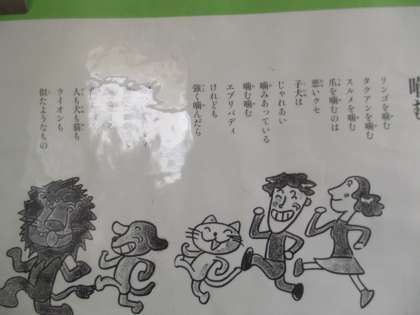 噛む
リンゴを噛む
タクアンを噛む
スルメを噛む
爪を噛むのは
悪いクセ
子犬は
じゃれあい
噛みあっている
噛む噛む
エブリバディ
けれども
強く噛んだら
人も犬も猫も
ライオンも
似たようなもの